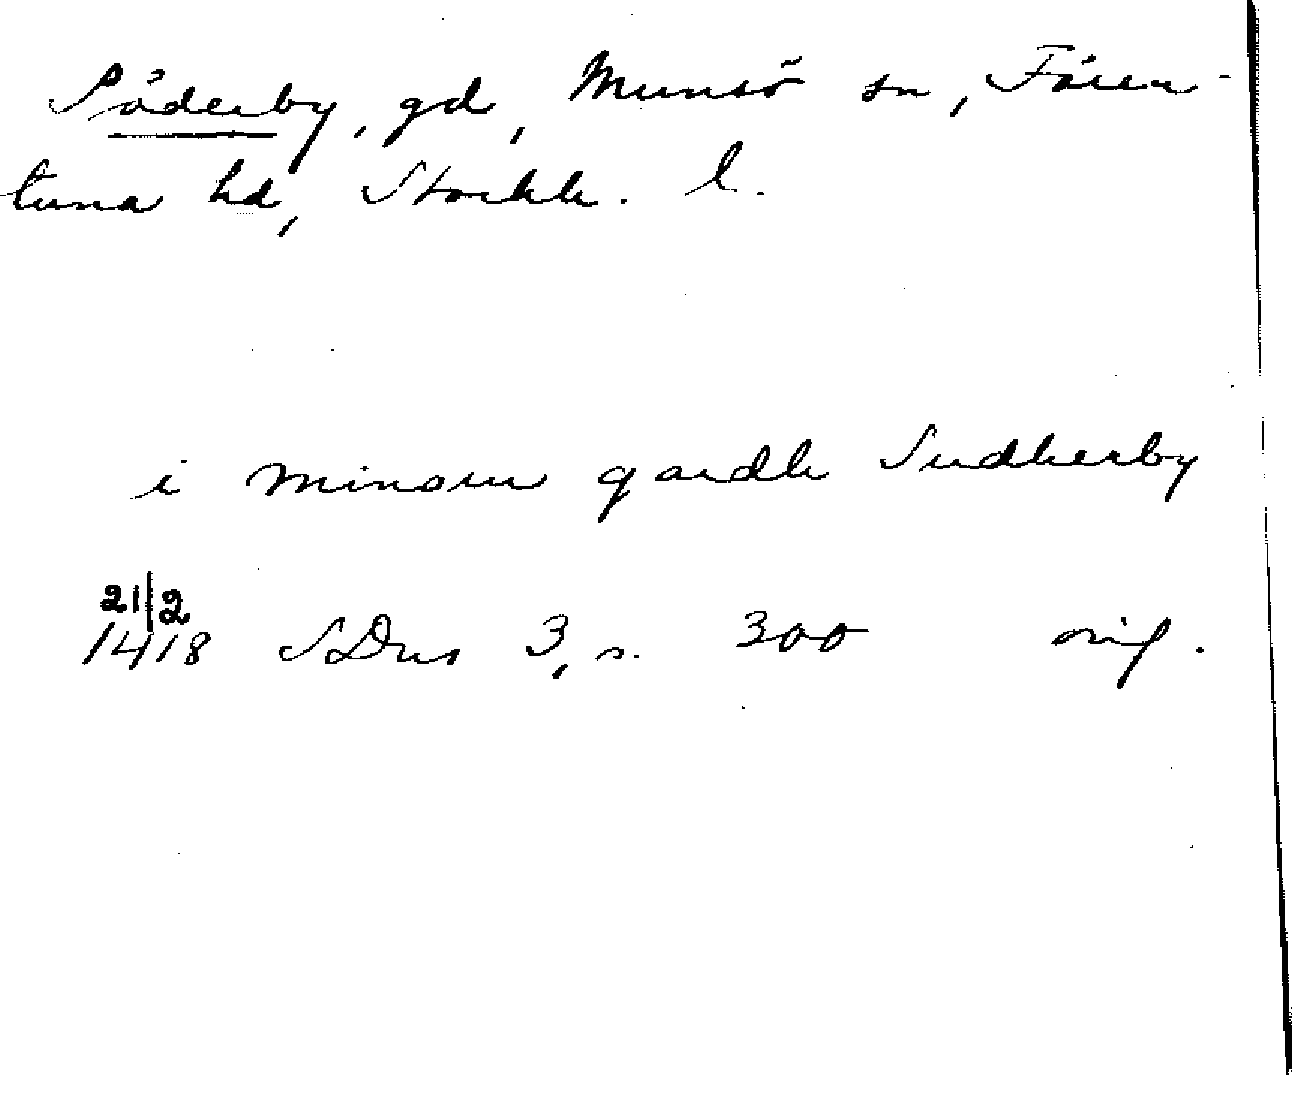 Söderby, gd, Munsö sn, Fären-
tuna hd, Stockh. l.
i minom gardh Sudherby
21/2
1418 SDns 3, s. 300 orig.